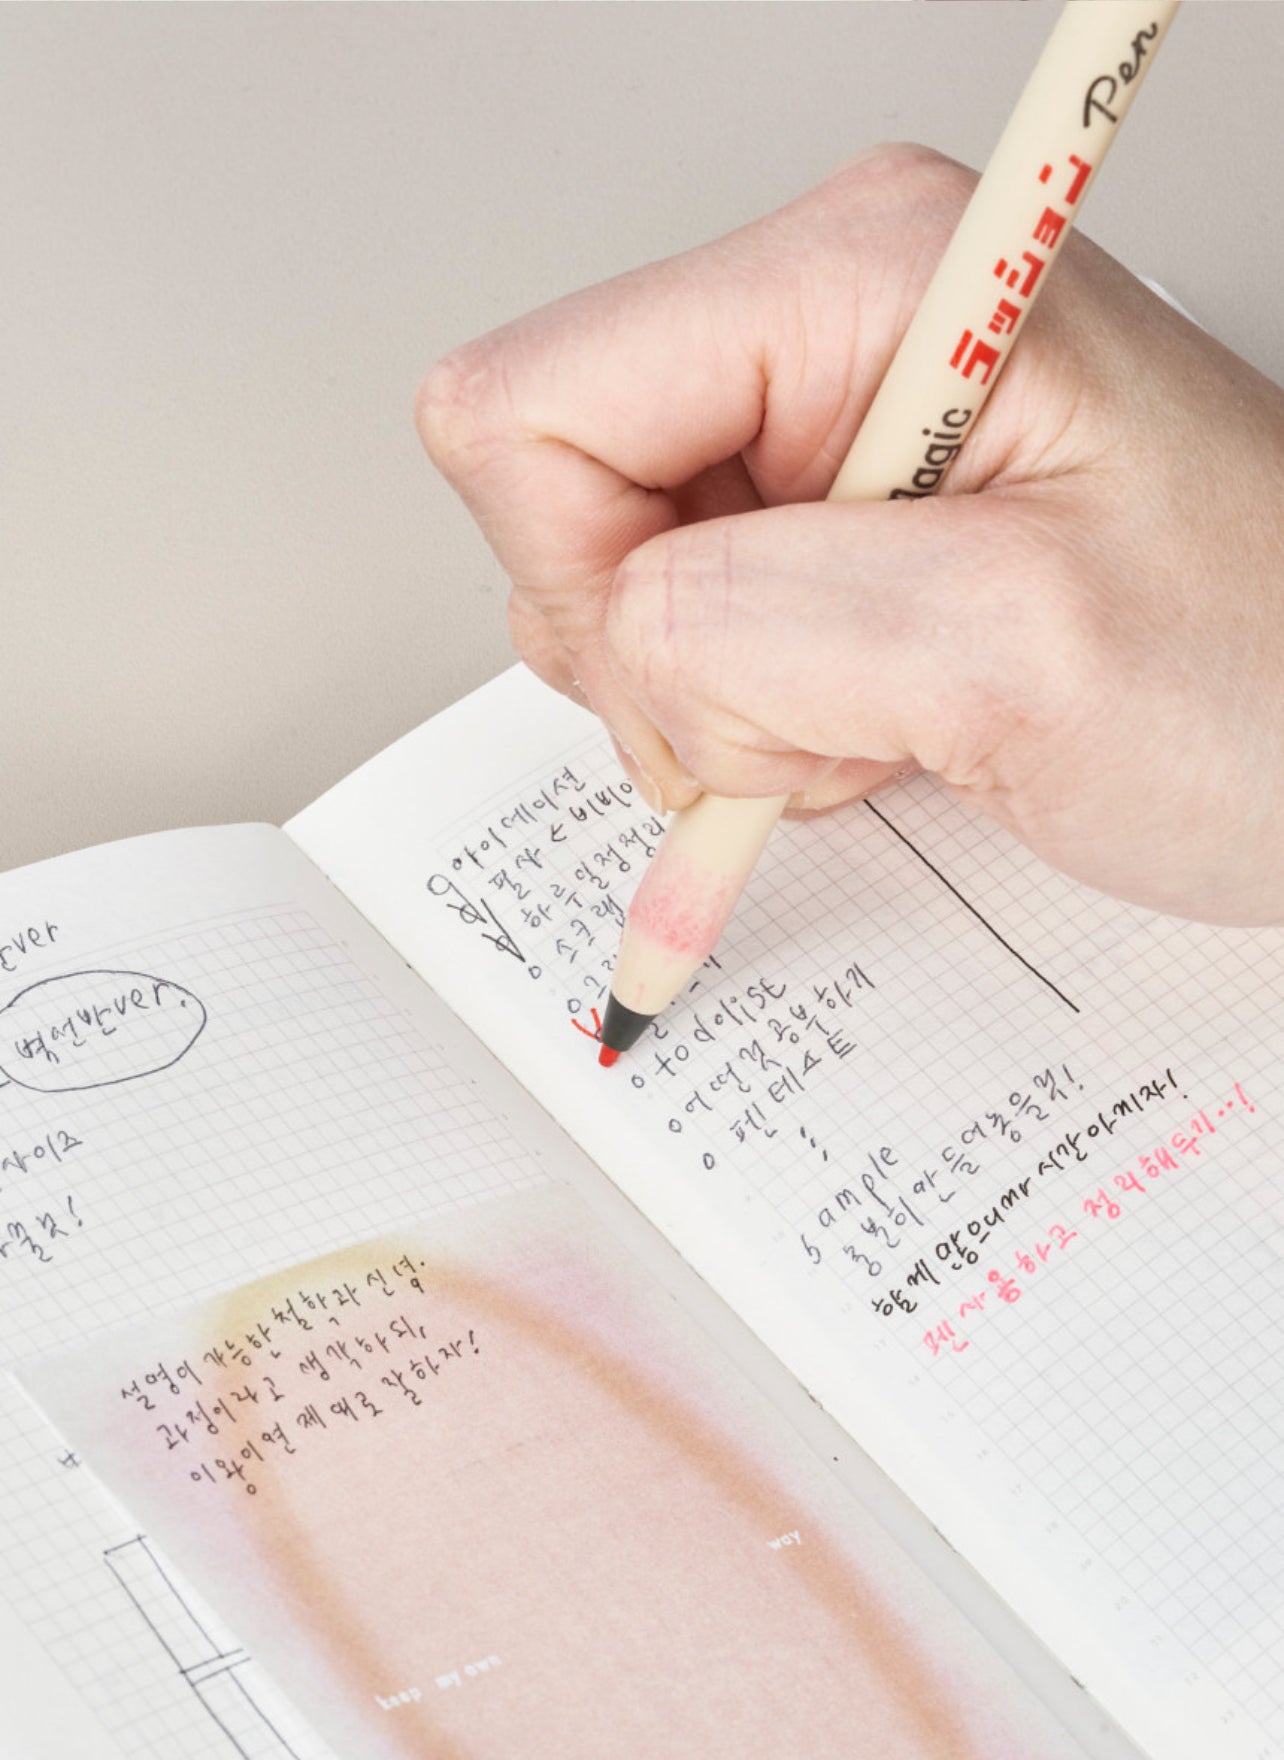 Magic ラッション Pen
아이데이션
필사 <
하루 일정정리
스크랩
todolist
어떤 것 공부하기
펜 테스트
sample
충분히 만들어 놓을 것!
함께 않으니까 시간 아끼자!
펜 사용하고 정리해두기..!
벽선반ver.
사이즈
설명이 가능한 철학과 신념.
과정이라고 생각하되,
이왕이면 제대로 잘하자!
way
keep my own